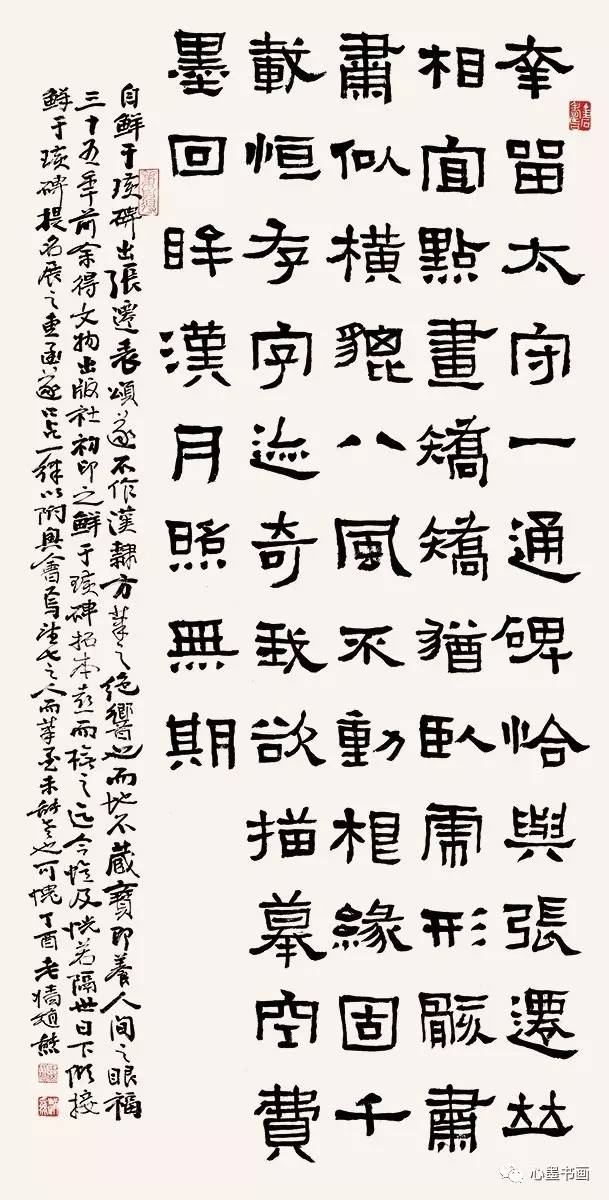 留太守一通碑恰與張遷竝
相宜點畫矯矯猶臥虎形骸肅
肅似橫貔八風不動相緣固千
載恒存字迹奇我欲描摹空費
墨回眸漢月照無期
自鮮于璜碑出張遷表頌遂不作漢隸方筆之絕響也而地不藏寶即養人間之眼福
三十五年前余得文物出版社初印之鮮于璜碑拓本而臨之迄今憶及恍若隔世日下欣接
鮮于璜碑提名展之惠函遂一紙以附興會焉之人而筆墨未能老也可愧丁酉老墻趙熊
心墨书画